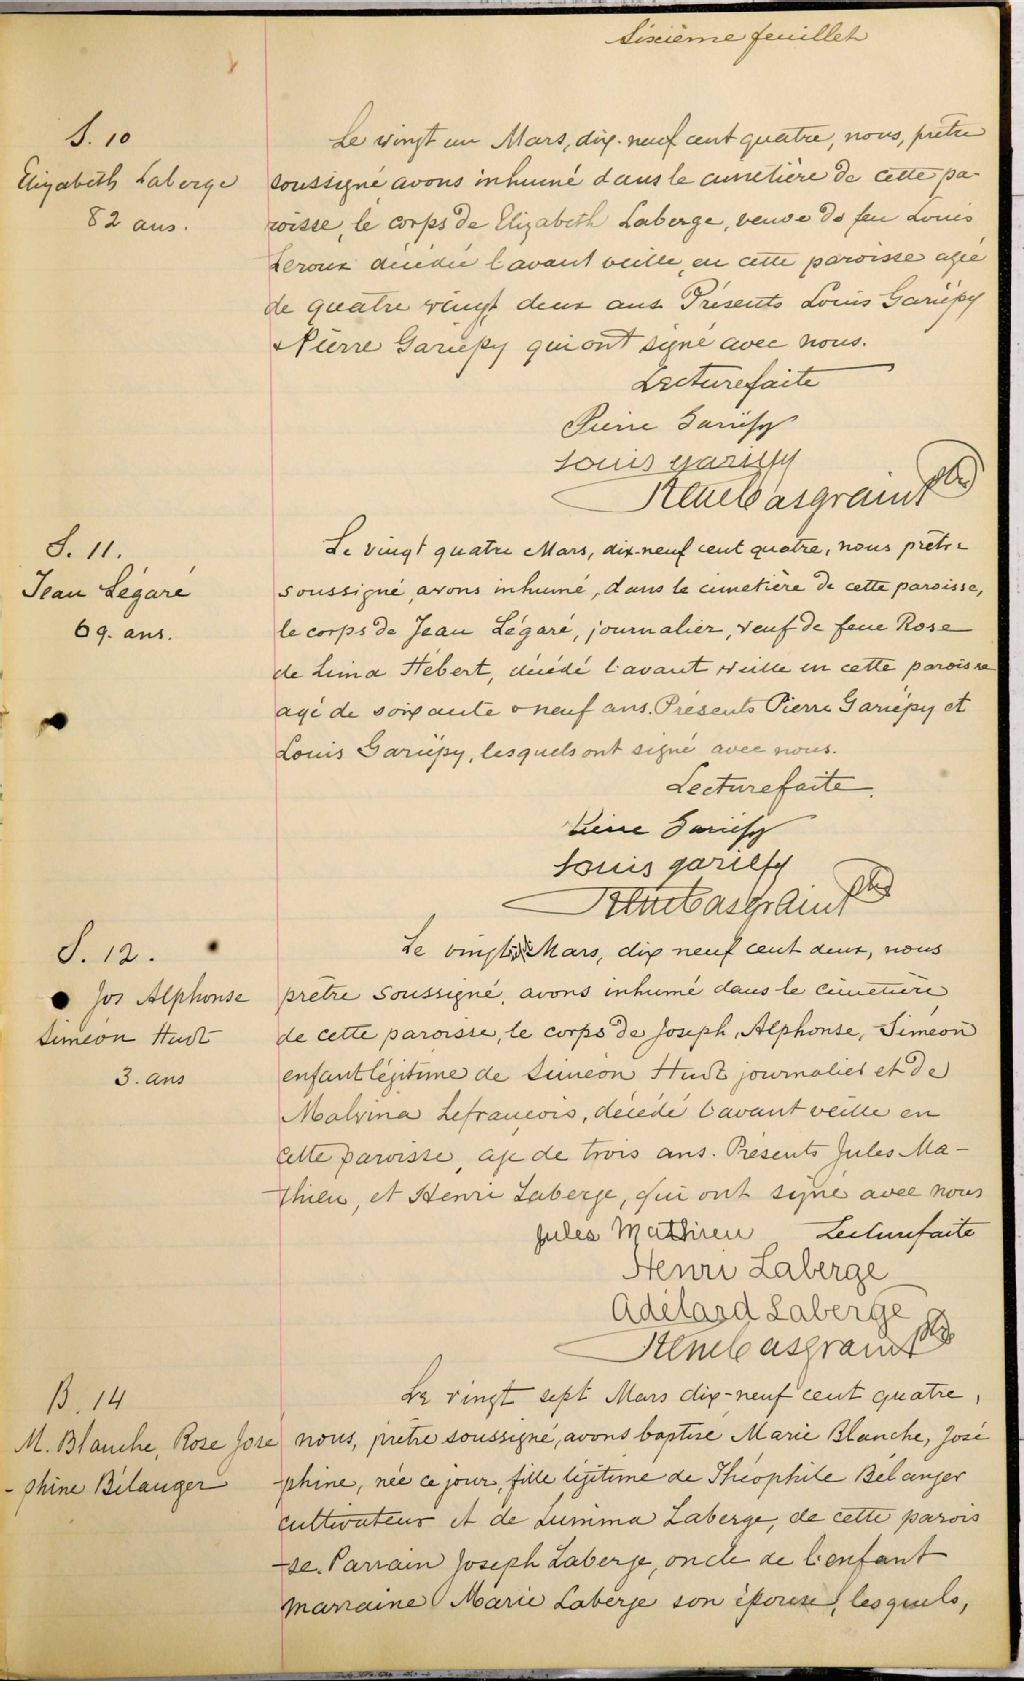 Sixième feuillet
S. 10
Elizabeth Laberge
82 ans.
Le vingt un Mars, dix-neuf cent quatre, nous, prêtre
soussigné avons inhumé dans le cimetière de cette pa-
roisse, le corps de Elizabeth Laberge, veuve de feu Louis
Leroux décédée l'avant veille, en cette paroisse agée
de quatre vingt deux ans Présents Louis Gariépy
& Pierre Gariépy qui ont signé avec nous.
Lecture faite
Pierre Gariépy
Louis gariépy
René Casgrain ptre
S. 11.
Jean Légaré
69. ans.
Le vingt quatre Mars, dix-neuf cent quatre, nous prêtre
soussigné, avons inhumé, dans le cimetière de cette paroisse,
le corps de Jean Légaré, journalier, veuf de feue Rose
de Lima Hébert, décédé l'avant veille en cette paroisse
agé de soixante & neuf ans. Présents Pierre Gariépy et
Louis Gariépy, lesquels ont signé avec nous.
Lecture faite.
Pierre Gariépy
Louis gariépy
René Casgrain ptre
S. 12.
Jos Alphonse
Siméon Huot
3. ans
Le vingt Mars, dix neuf cent deux, nous
prêtre soussigné, avons inhumé dans le cimetière
de cette paroisse, le corps de Joseph, Alphonse, Siméon
enfant légitime de Siméon Huot journalier et de
Malvina Lefrançois, décédé l'avant veille en
cette paroisse, agé de trois ans. Présents Jules Ma-
-thieu, et Henri Laberge, qui ont signé avec nous
Jules Mathieu Lecture faite
Henri Laberge
Adélard Laberge
René Casgrain ptre
B. 14
M. Blanche, Rose José
-phine Bélanger
Le vingt sept Mars dix-neuf cent quatre,
nous, prêtre soussigné, avons baptisé Marie Blanche, José
-phine, née ce jour, fille légitime de Théophile Bélanger
cultivateur et de Lumina Laberge, de cette parois
-se. Parrain Joseph Laberge, oncle de l'enfant
marraine Marie Laberge son épouse, lesquels,